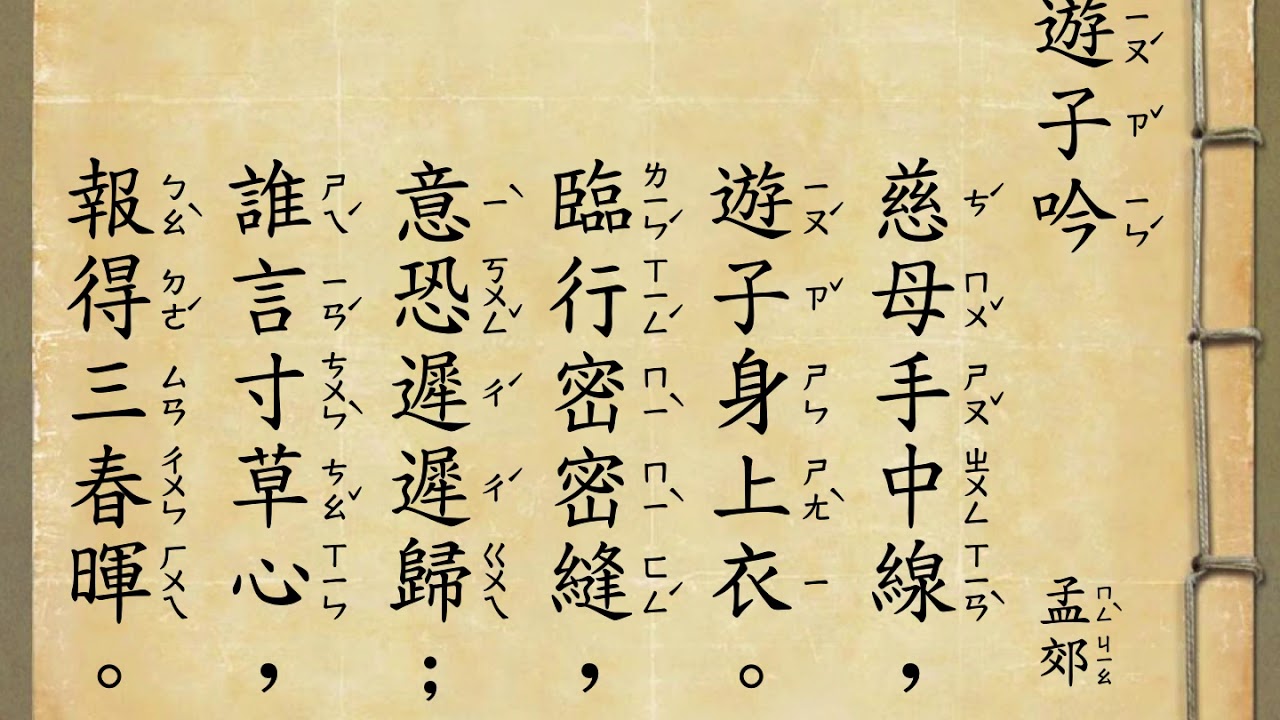 遊ㄧㄡˊ子ㄗˇ吟ㄧㄣˊ
孟ㄇㄥˋ郊ㄐㄧㄠ
慈ㄘˊ母ㄇㄨˇ手ㄕㄡˇ中ㄓㄨㄥ線ㄒㄧㄢˋ，
遊ㄧㄡˊ子ㄗˇ身ㄕㄣ上ㄕㄤˋ衣ㄧ。
臨ㄌㄧㄣˊ行ㄒㄧㄥˊ密ㄇㄧˋ密ㄇㄧˋ縫ㄈㄥˊ，
意ㄧˋ恐ㄎㄨㄥˇ遲ㄔˊ遲ㄔˊ歸ㄍㄨㄟ；
誰ㄕㄟˊ言ㄧㄢˊ寸ㄘㄨㄣˋ草ㄘㄠˇ心ㄒㄧㄣ，
報ㄅㄠˋ得ㄉㄜˊ三ㄙㄢ春ㄔㄨㄣ暉ㄏㄨㄟ。